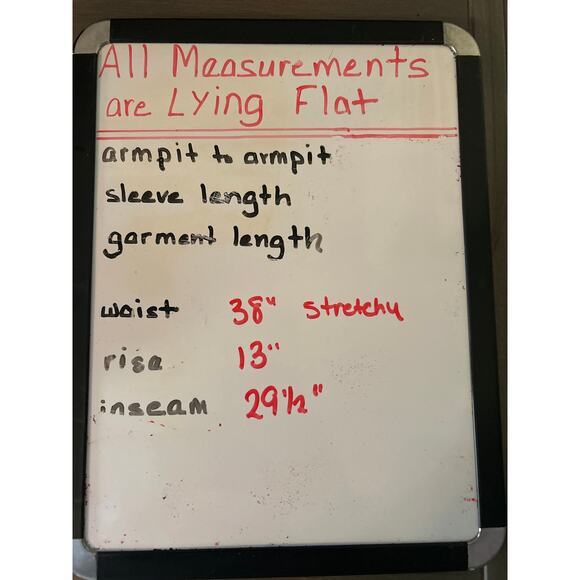 All Measurements
are Lying Flat
armpit to armpit
sleeve length
garment length
waist 38" stretchy
rise 13"
inseam 29 1/2"